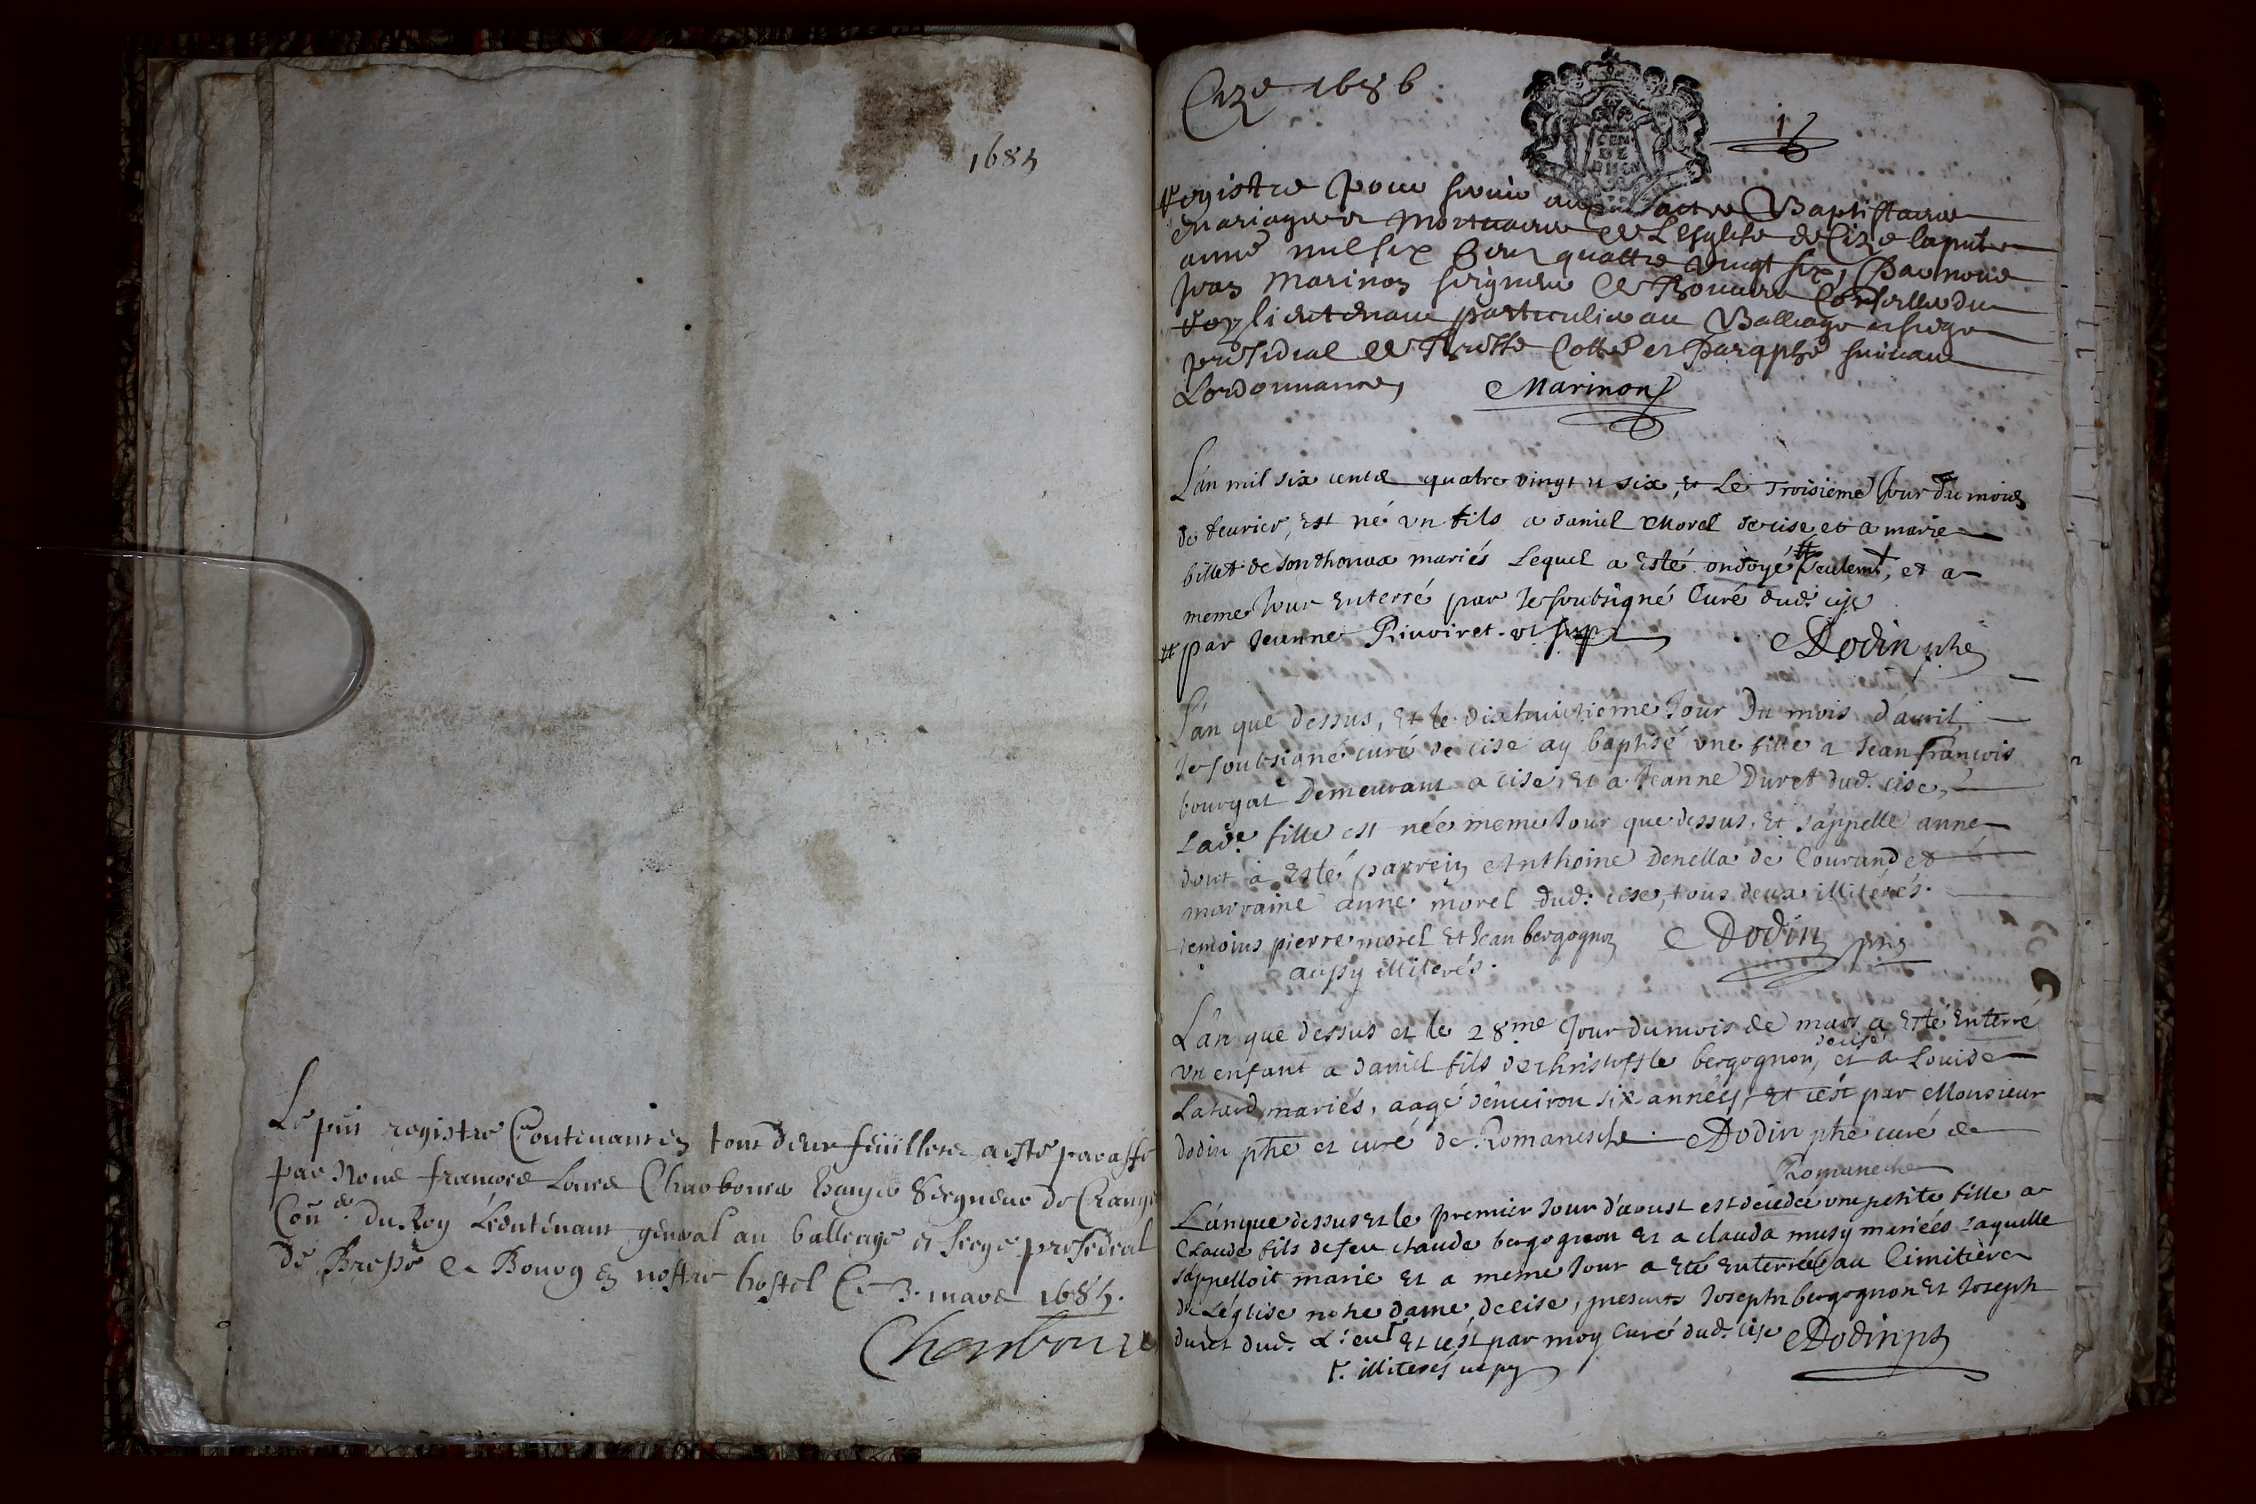 1685
Le pnt registre Contenant en tout deux feuillets a esté paraffé
par Nous francois Louis Charbonnier Seigneur de Crangeac
Con.er du Roy Lieutenant general au balliage et siege presidial
de Bresse a Bourg en nostre hostel Ce 3. mars 1685.
Charbonnier
Cize 1686
1
CEN DE
Registre pour servir aux actes Baptistaire
mariage et mortuaire de Lesglise de Cize la pnte
année mil six Cent quattre vingt six, Par nous
Jean Marinon seigneur de Conseiller du
Roy lieutenant particulier au Balliage et siege
presidial de Bresse Cotté et Paraphé suivant
Lordonnance,
Marinon
L'an mil six cents quatre vingt et six, et Le Troisieme Jour du mois
de feurier, est né vn fils a daniel Morel de cise et a marie
billet de sonthonax mariés Lequel a esté ondoyé # seulemt, et a
meme Jour enterré par Je soubsigné Curé dud. cise
# par Jeanne Riuoiret. vt supr
Dodin ptre
L'an que dessus, et le dixhuictieme Jour Du mois d'auril
Je soubsigné curé de cise ay baptisé vne fille a Jean françois
bourgat Demeurant a cise, et a Jeanne Duret dud. cise,
Lad.e fille est née meme Jour que dessus. et s'appelle anne
dont a esté parrein Anthoine Denella de Courand et
marraine anne morel dud. cise, tous deux illiterés.
temoins pierre morel et Jean bergognon
aussy illiterés.
Dodin ptre
L'an que dessus et le 28.me Jour du mois de mars a esté enterré
vn enfant a daniel fils de christoffle bergognon, de cise et a Louise
Latard mariés, aagé denuiron six années, et c'est par Monsieur
Dodin ptre et curé de Romanesche. Dodin ptre curé de
Romaneche
L'an que dessus et le premier Jour d'aoust est decedée vne petite fille a
Claude fils de feu claude bergognon et a clauda musy mariées Laquelle
s'appelloit marie et a meme Jour a été enterrée au Cimitiere
de L'eglise notre dame de cise, presents Joseph bergognon et Joseph
duret dud. Lieu et c'est par moy curé dud. cise Dodin ptre
illiterés